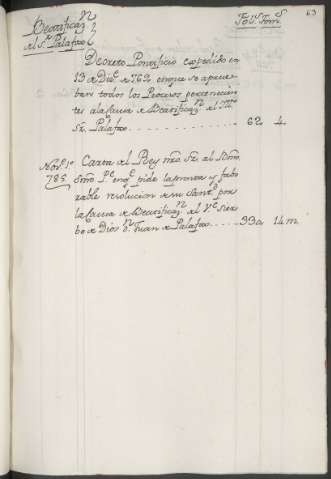 63
Beatificaⁿ
al Sʳ. Palafox
Foˢ. Tomˢ.
Decreto Pontificio expedido en
13 de Dicᵉ. de 762. en que se aprue-
ban todos los Procesos pertenecien-
tes a la Causa de Beatificaⁿ. del
Sʳ. Palafox 62 4.
1º
785.
Carta del Rey nrô Sʳ. al
Pᵉ. en qᵉ. pide la pronta y favo-
rable resolucion de su Santᵈ. por
la Causa de Beatificaⁿ. del Vᵉ. Sier-
bo de Dios Dⁿ. Juan de Palafox 330. 14. m.